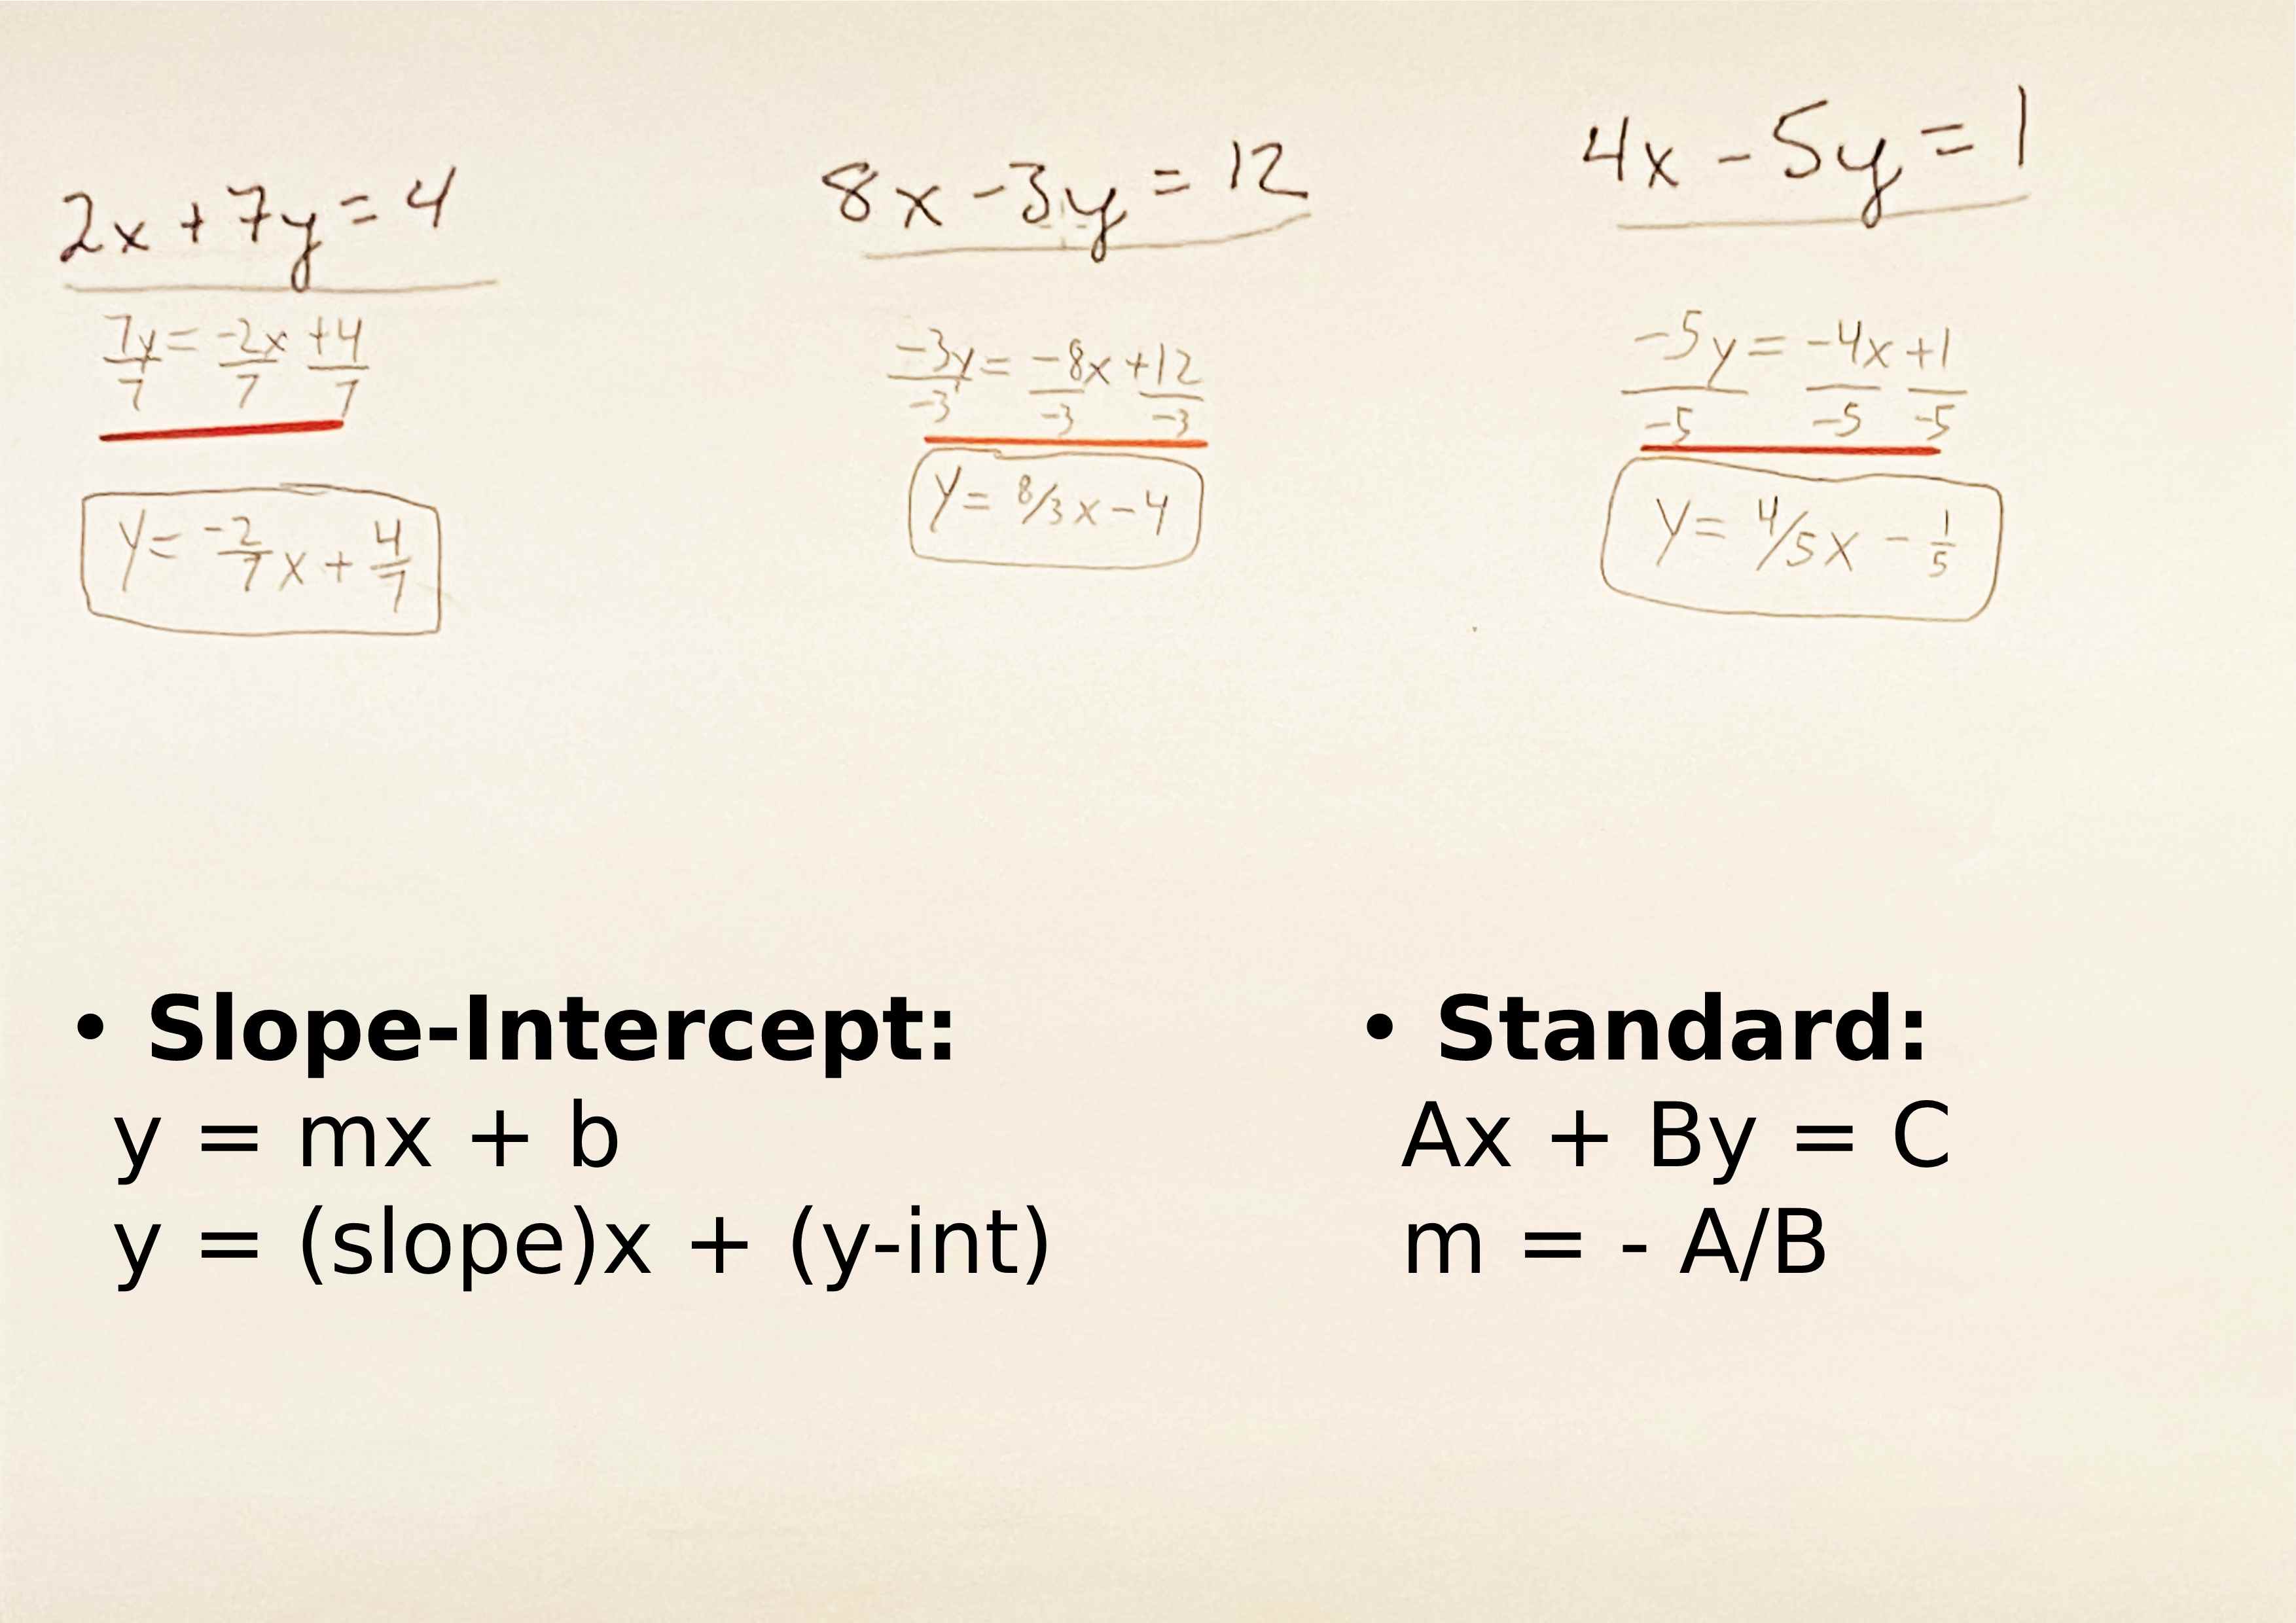 2x + 7y = 4
7y/7 = -2x/7 +4/7
y = -2/7 x + 4/7
8x - 3y = 12
-3y/-3 = -8x/-3 +12/-3
y = 8/3 x - 4
4x - 5y = 1
-5y/-5 = -4x/-5 +1/-5
y = 4/5 x - 1/5
• Slope-Intercept:
y = mx + b
y = (slope)x + (y-int)
• Standard:
Ax + By = C
m = - A/B